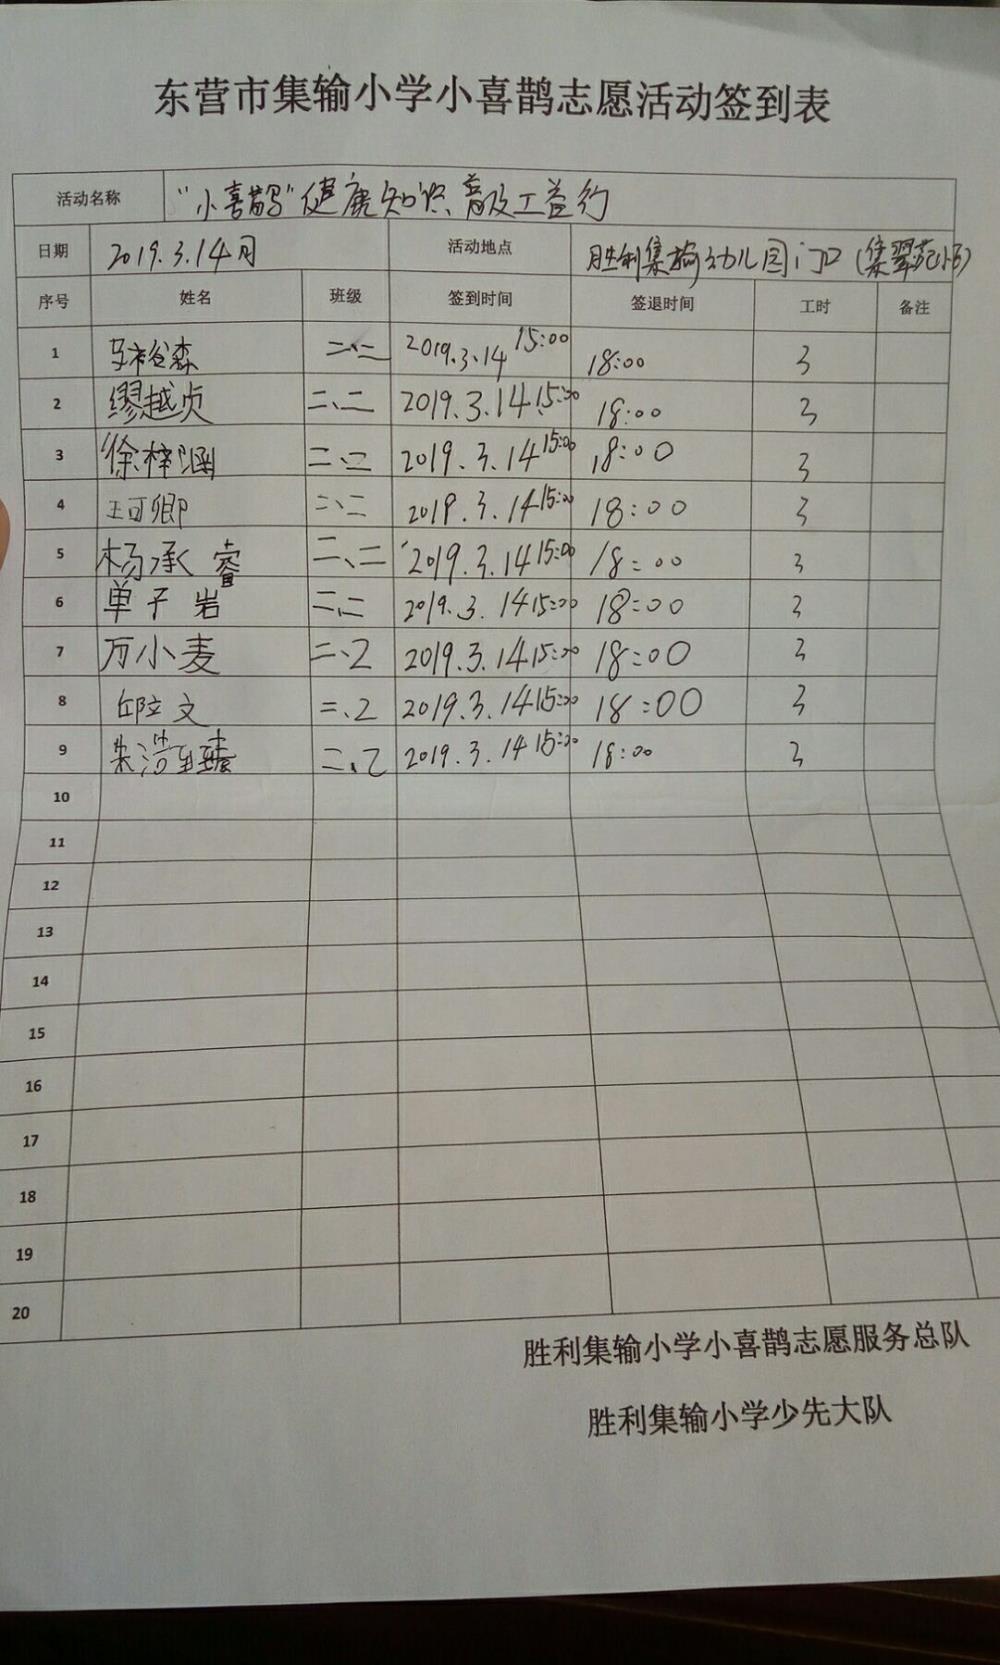 东营市集输小学小喜鹊志愿活动签到表
活动名称 “小喜鹊”健康知识普及公益行
日期 2019.3.14 活动地点 胜利集输幼儿园门口(集翠苑
序号 姓名 班级 签到时间 签退时间 工时 备注
1 森 二、二 2019.3.14 15:00 18:00 3
2 缪越贞 二、二 2019.3.14 15:00 18:00 3
3 徐梓涵 二、二 2019.3.14 15:00 18:00 3
4 王可卿 二、二 2019.3.14 15:00 18:00 3
5 杨承睿 二、二 2019.3.14 15:00 18:00 3
6 单子岩 二、二 2019.3.14 15:00 18:00 3
7 万小麦 二、2 2019.3.14 15:00 18:00 3
8 邱立文 二、2 2019.3.14 15:00 18:00 3
9 朱浩臻 二、2 2019.3.14 15:00 18:00 3
10
11
12
13
14
15
16
17
18
19
20
胜利集输小学小喜鹊志愿服务总队
胜利集输小学少先大队